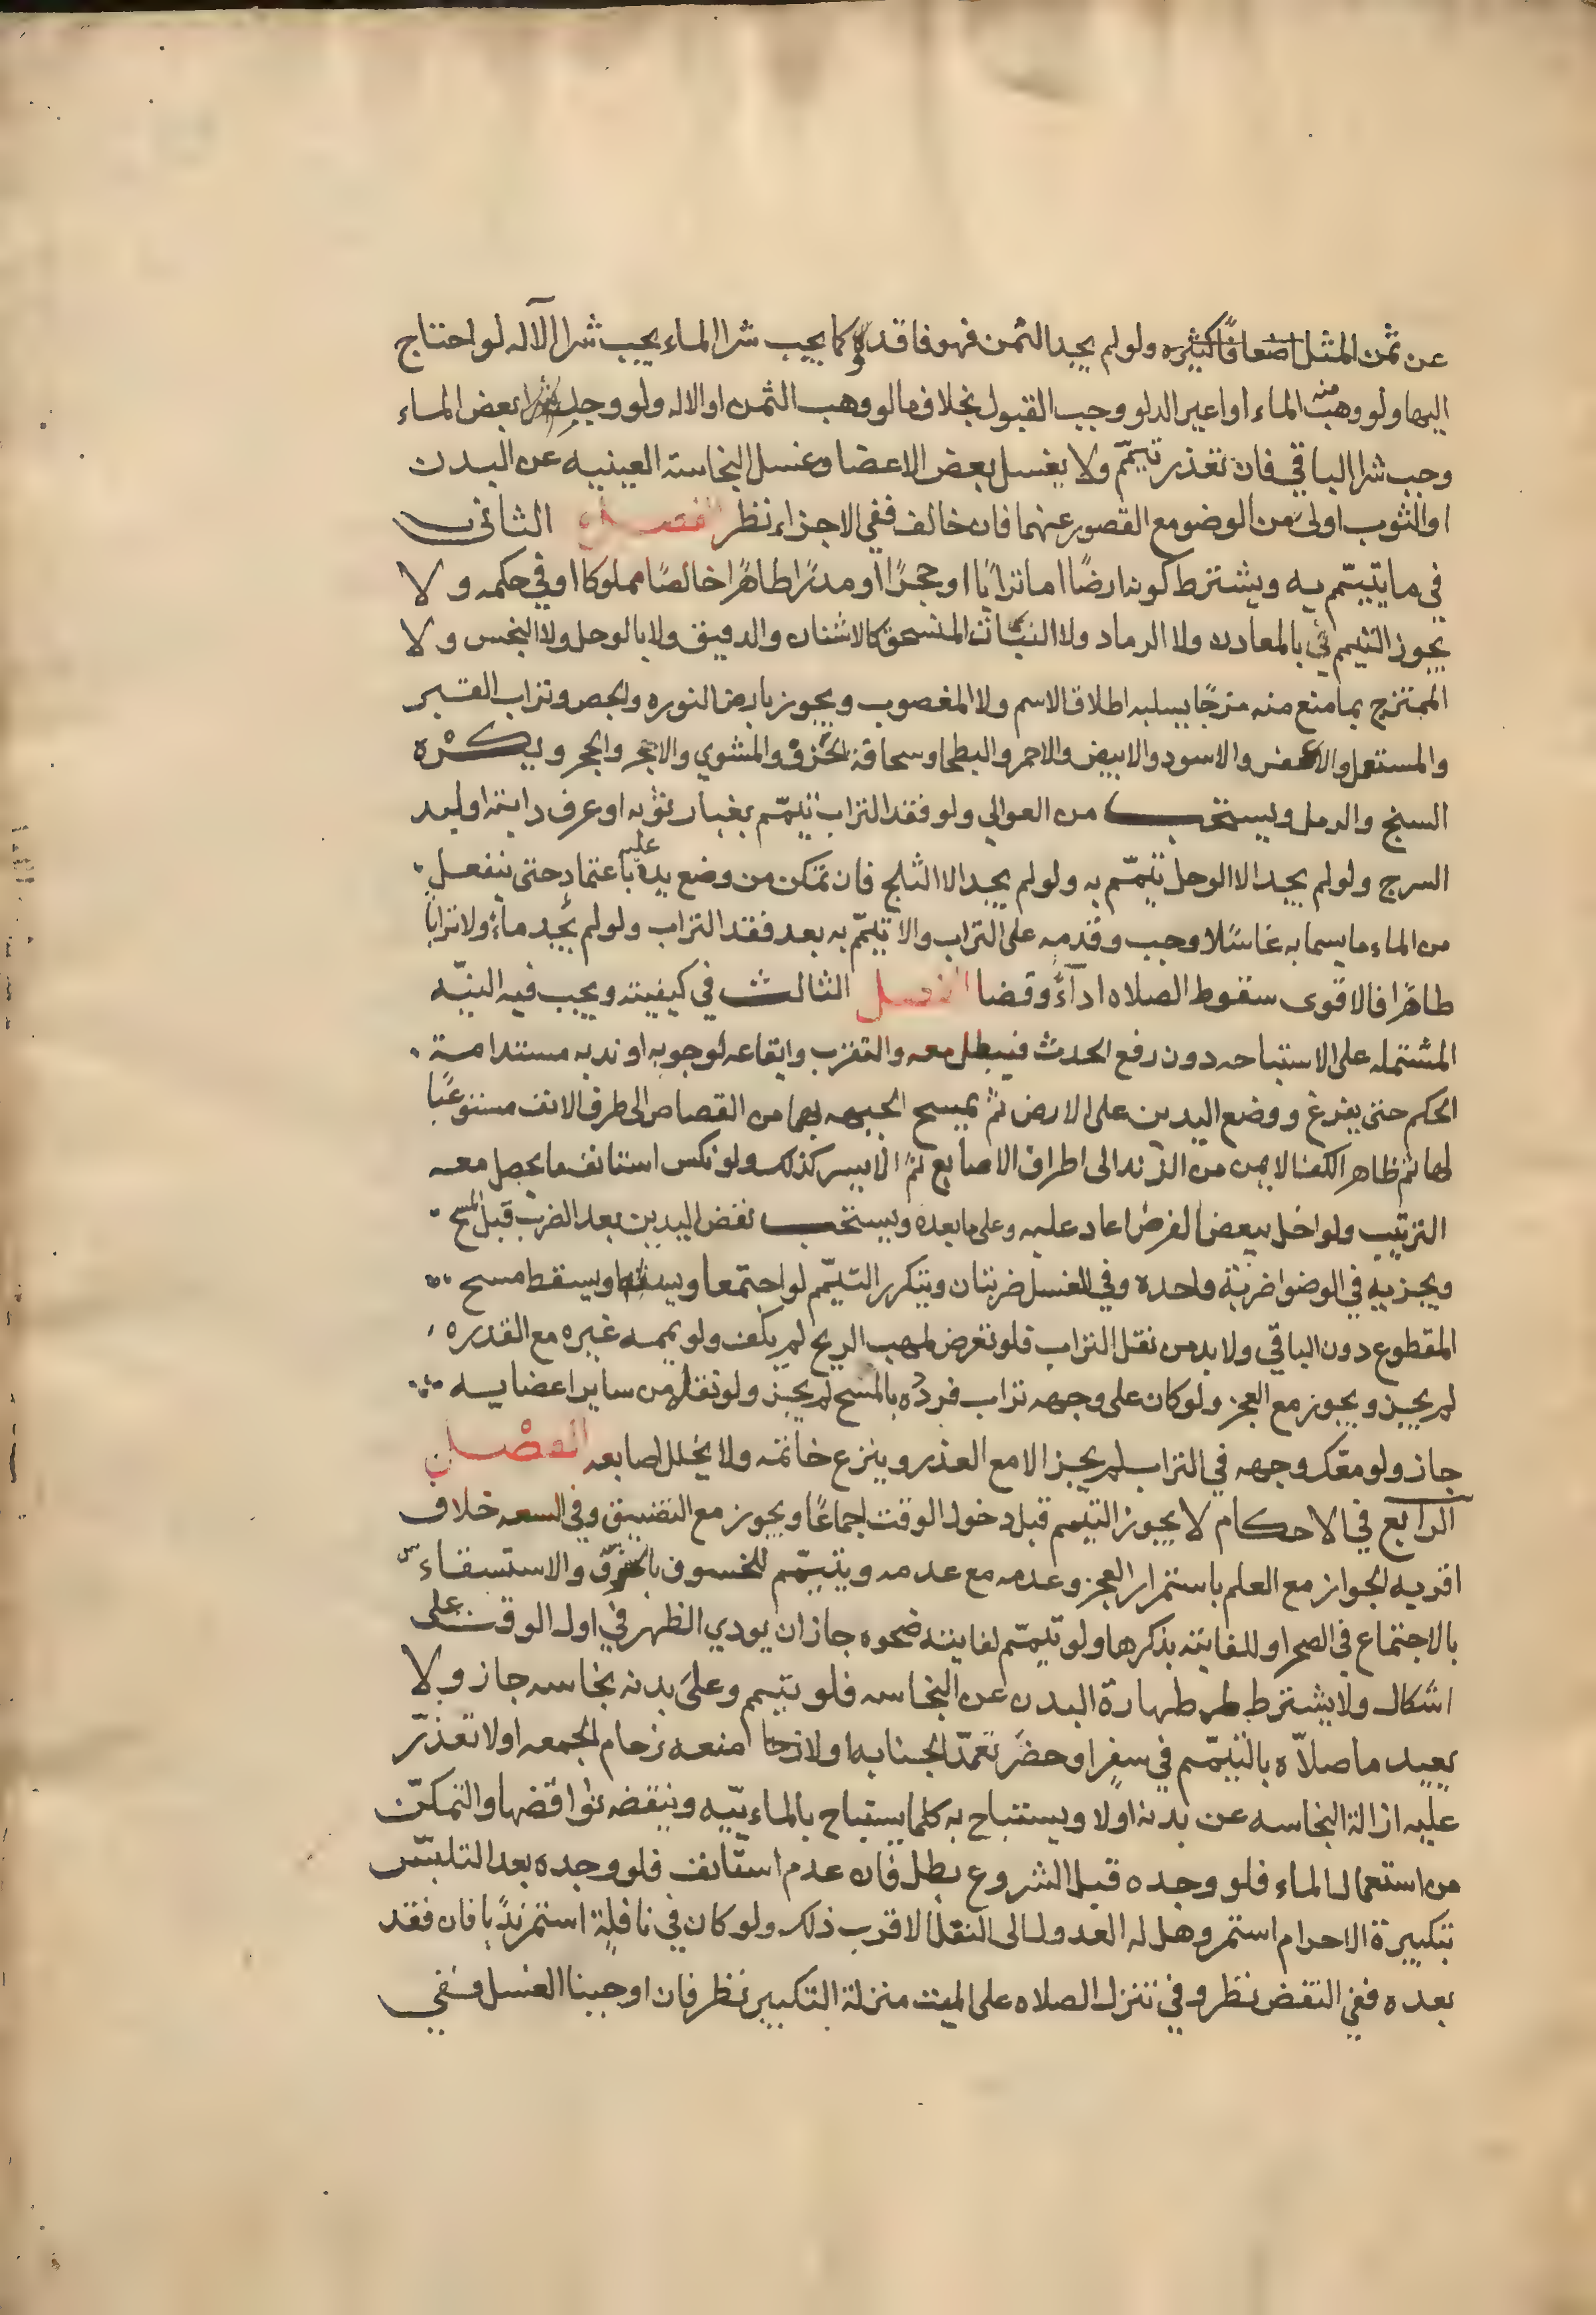 عن ثمن المثل اضعافا كثيره ولو لم يجد الثمن فهو فاقد وكما يجب شرا الماء يجب شرا الآله لو احتاج
اليها ولو وهب منه الماء او اعير الدلو وجب القبول بخلاف ما لو وهب الثمن او الاله ولو وجد بعض الماء
وجب شرا الباقي فان تعذر تيمّم ولا يغسل بعض الاعضا وغسل النجاسة العينيه عن البدن
او الثوب اولى من الوضو مع القصور عنهما فان خالف ففي الاجزاء نظر الفصل الثاني
في ما يتيمّم به ويشترط كونه ارضًا اما ترابًا او حجرًا او مدرًا طاهرًا خالصًا مملوكا او في حكمه ولا
يجوز التيمم بالمعادن ولا الرماد ولا النبات المنسحق كالاشنان والدقيق ولا بالوحل ولا النجس ولا
الممتزج بما منع منه مزجًا يسلبه اطلاق الاسم ولا المغصوب ويجوز بارض النوره والجص وتراب القبر
والمستعمل والاعفر والاسود والابيض والاحمر والبطحا وسحاقة الخزف والمشوي والاجر والحجر ويكره
السبخ والرمل ويستحب من العوالي ولو فقد التراب تيمّم بغبار ثوبه او عرف دابته او لبد
السرج ولو لم يجد الا الوحل تيمّم به ولو لم يجد الا الثلج فان تمكن من وضع يده عليه باعتماد حتى ينفصل
من الماء ما يسما به غاسلا وجب وقدمه على التراب والا تيمّم به بعد فقد التراب ولو لم يجد ماءً ولا ترابًا
طاهرًا فالاقوى سقوط الصلاه اداءً وقضا الفصل الثالث في كيفيته ويجب فيه النيّه
المشتمله على الاستباحه دون رفع الحدث فيبطل معه والتقرب وايقاعه لوجوبه او ندبه مستدامة
الحكم حتى يفرغ ووضع اليدين على الارض ثم يمسح الجبهه بهما من القصاص الى طرف الانف مستوعبًا
لها ثم ظاهر الكف الايمن من الزند الى اطراف الاصابع ثم الايسر كذلك ولو نكس استانف ما يحصل معه
الترتيب ولو اخل ببعض الفرض اعاد عليه وعلى ما بعده ويستحب نفض اليدين بعد الضرب قبل المسح
ويجزيه في الوضوا ضربة واحدة وفي الغسل ضربتان ويتكرر التيمّم لو اجتمعا ويسقط مسح
المقطوع دون الباقي ولا بد من نقل التراب فلو تعرض لمهب الريح لم يكف ولو يممه غيره مع القدره
لم يجز ويجوز مع العجز ولو كان على وجهه تراب فردّه بالمسح لم يجز ولو نقله من ساير اعضايه
جاز ولو معّك وجهه في التراب لم يجز الا مع العذر وينزع خاتمه ولا يخلل اصابعه الفصل
الرابع في الاحكام لا يجوز التيمم قبل دخول الوقت اجماعًا ويجوز مع التضييق وفي السعه خلاف
اقربه الجواز مع العلم باستمرار العجز وعدمه مع عدمه ويتيمّم للخسوف والاستسقاء
بالاجتماع في الصحرا وللفايته بذكرها ولو تيمّم لفايتة ضحوه جاز ان يودي الظهر في اول الوقت على
اشكال ولا يشترط طهارة البدن عن النجاسه فلو تيمم وعلى بدنه نجاسه جاز ولا
يعيد ما صلاّه بالتيمّم في سفر او حضر تعمّد الجنابه اولا منعه زحام الجمعه اولا تعذر
عليه ازالة النجاسه عن بدنه اولا ويستباح به كلما يستباح بالمائيّه وينقضه نواقضها والتمكن
من استعمال الماء فلو وجده قبل الشروع بطل فان عدم استانف فلو وجده بعد التلبّس
بتكبيرة الاحرام استمر وهل له العدول الى النفل الاقرب ذلك ولو كان في نافلة استمر ندبًا فان فقد
بعده ففي النقض نظر وفي تنزل الصلاه على الميت منزلة التكبير نظر فان اوجبنا الغسل ففي